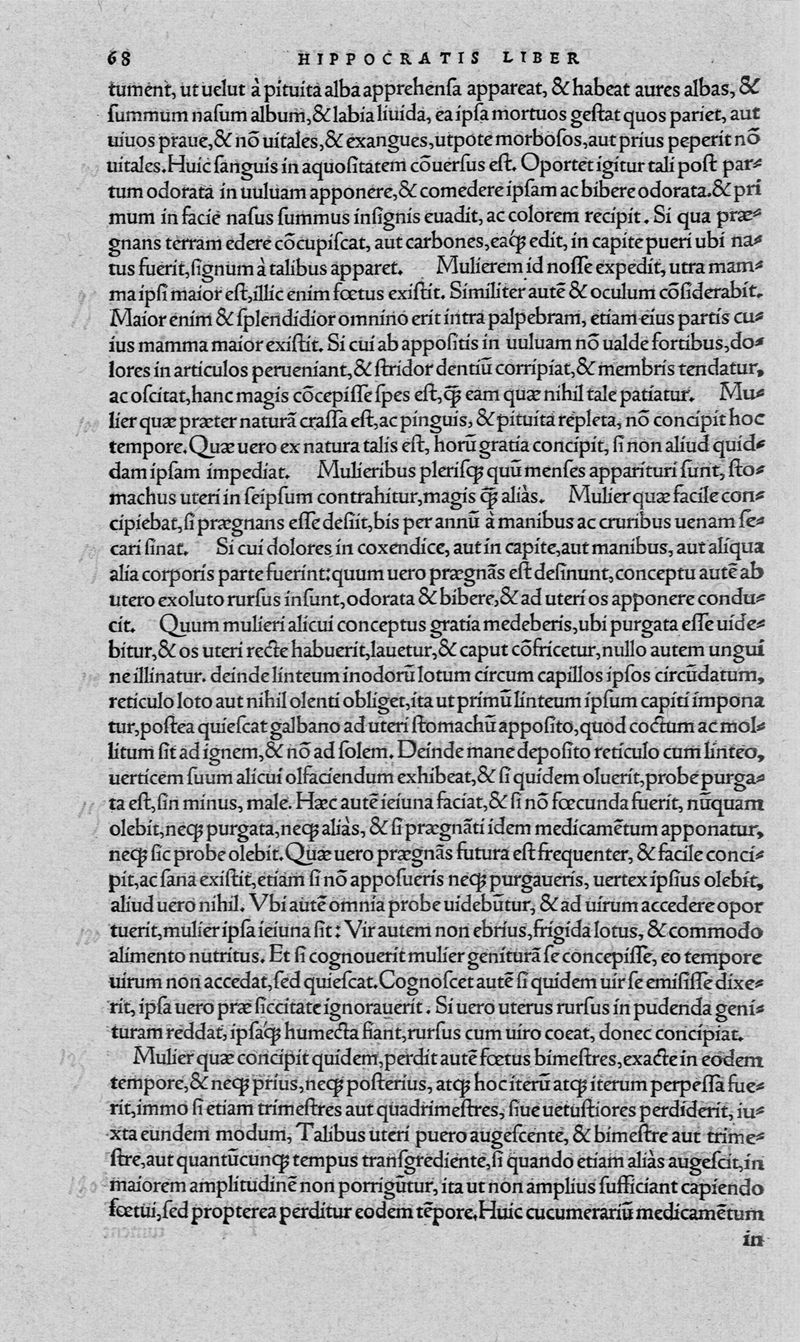 68 HIPPOCRATIS LIBER
tument, ut uelut à pituita alba apprehenſa appareat, & habeat aures albas, &
ſummum naſum album,& labia liuida, ea ipſa mortuos geſtat quos pariet, aut
uiuos praue,& nō uitales,& exangues,utpote morboſos,aut prius peperit nō
uitales.Huic ſanguis in aquoſitatem cōuerſus eſt. Oportet igitur tali poſt par⸗
tum odorata in uuluam apponere,& comedere ipſam ac bibere odorata.& pri
mum in facie naſus ſummus inſignis euadit, ac colorem recipit. Si qua præ⸗
gnans terram edere cōcupiſcat, aut carbones,eaq́ꝫ edit, in capite pueri ubi na⸗
tus fuerit,ſignum à talibus apparet. Mulierem id noſſe expedit, utra mam⸗
ma ipſi maior eſt,illic enim fœtus exiſtit. Similiter autē & oculum cōſiderabit.
Maior enim & ſplendidior omnino erit intra palpebram, etiam eius partis cu⸗
ius mamma maior exiſtit. Si cui ab appoſitis in uuluam nō ualde fortibus,do⸗
lores in articulos perueniant,& ſtridor dentiū corripiat,& membris tendatur,
ac oſcitat,hanc magis cōcepiſſe ſpes eſt,q̄ꝫ eam quæ nihil tale patiatur. Mu⸗
lier quæ præter naturā craſſa eſt,ac pinguis, & pituita repleta, nō concipit hoc
tempore.Quæ uero ex natura talis eſt, horū gratia concipit, ſi non aliud quid⸗
dam ipſam impediat. Mulieribus pleriſqꝫ quū menſes apparituri ſunt, ſto⸗
machus uteri in ſeipſum contrahitur,magis q̄ꝫ aliàs. Mulier quæ facile con⸗
cipiebat,ſi prægnans eſſe deſiit,bis per annū à manibus ac cruribus uenam ſe⸗
cari ſinat. Si cui dolores in coxendice, aut in capite,aut manibus, aut aliqua
alia corporis parte fuerint:quum uero prægnās eſt deſinunt,conceptu autē ab
utero exoluto rurſus inſunt,odorata & bibere,& ad uteri os apponere condu⸗
cit. Quum mulieri alicui conceptus gratia medeberis,ubi purgata eſſe uide⸗
bitur,& os uteri recte habuerit,lauetur,& caput cōfricetur,nullo autem ungui
ne illinatur. deinde linteum inodorū lotum circum capillos ipſos circūdatum,
reticulo loto aut nihil olenti obliget,ita ut primū linteum ipſum capiti impona
tur,poſtea quieſcat galbano ad uteri ſtomachū appoſito,quod coctum ac mol⸗
litum ſit ad ignem,& nō ad ſolem. Deinde mane depoſito reticulo cum linteo,
uerticem ſuum alicui olfaciendum exhibeat,& ſi quidem oluerit,probe purga⸗
ta eſt,ſin minus, male. Hæc autē ieiuna faciat,& ſi nō fœcunda fuerit, nūquam
olebit,neqꝫ purgata,neqꝫ aliàs, & ſi prægnāti idem medicamētum apponatur,
neqꝫ ſic probe olebit.Quæ uero prægnās futura eſt frequenter, & facile conci⸗
pit,ac ſana exiſtit,etiam ſi nō appoſueris neqꝫ purgaueris, uertex ipſius olebit,
aliud uero nihil. Vbi autē omnia probe uidebūtur, & ad uirum accedere opor
tuerit,mulier ipſa ieiuna ſit: Vir autem non ebrius,frigida lotus, & commodo
alimento nutritus. Et ſi cognouerit mulier geniturā ſe concepiſſe, eo tempore
uirum non accedat,ſed quieſcat.Cognoſcet autē ſi quidem uir ſe emiſiſſe dixe⸗
rit, ipſa uero præ ſiccitate ignorauerit. Si uero uterus rurſus in pudenda geni⸗
turam reddat, ipſaq́ꝫ humecta fiant,rurſus cum uiro coeat, donec concipiat.
Mulier quæ concipit quidem,perdit autē fœtus bimeſtres,exacte in eodem
tempore,& neqꝫ prius,neqꝫ poſterius, atqꝫ hoc iterū atqꝫ iterum perpeſſa fue⸗
rit,immo ſi etiam trimeſtres aut quadrimeſtres, ſiue uetuſtiores perdiderit, iu⸗
xta eundem modum, Talibus uteri puero augeſcente, & bimeſtre aut trime⸗
ſtre,aut quantūcunqꝫ tempus tranſgrediente,ſi quando etiam aliàs augeſcit,in
maiorem amplitudinē non porrigūtur, ita ut non amplius ſufficiant capiendo
fœtui,ſed propterea perditur eodem tēpore.Huic cucumerariū medicamētum
in